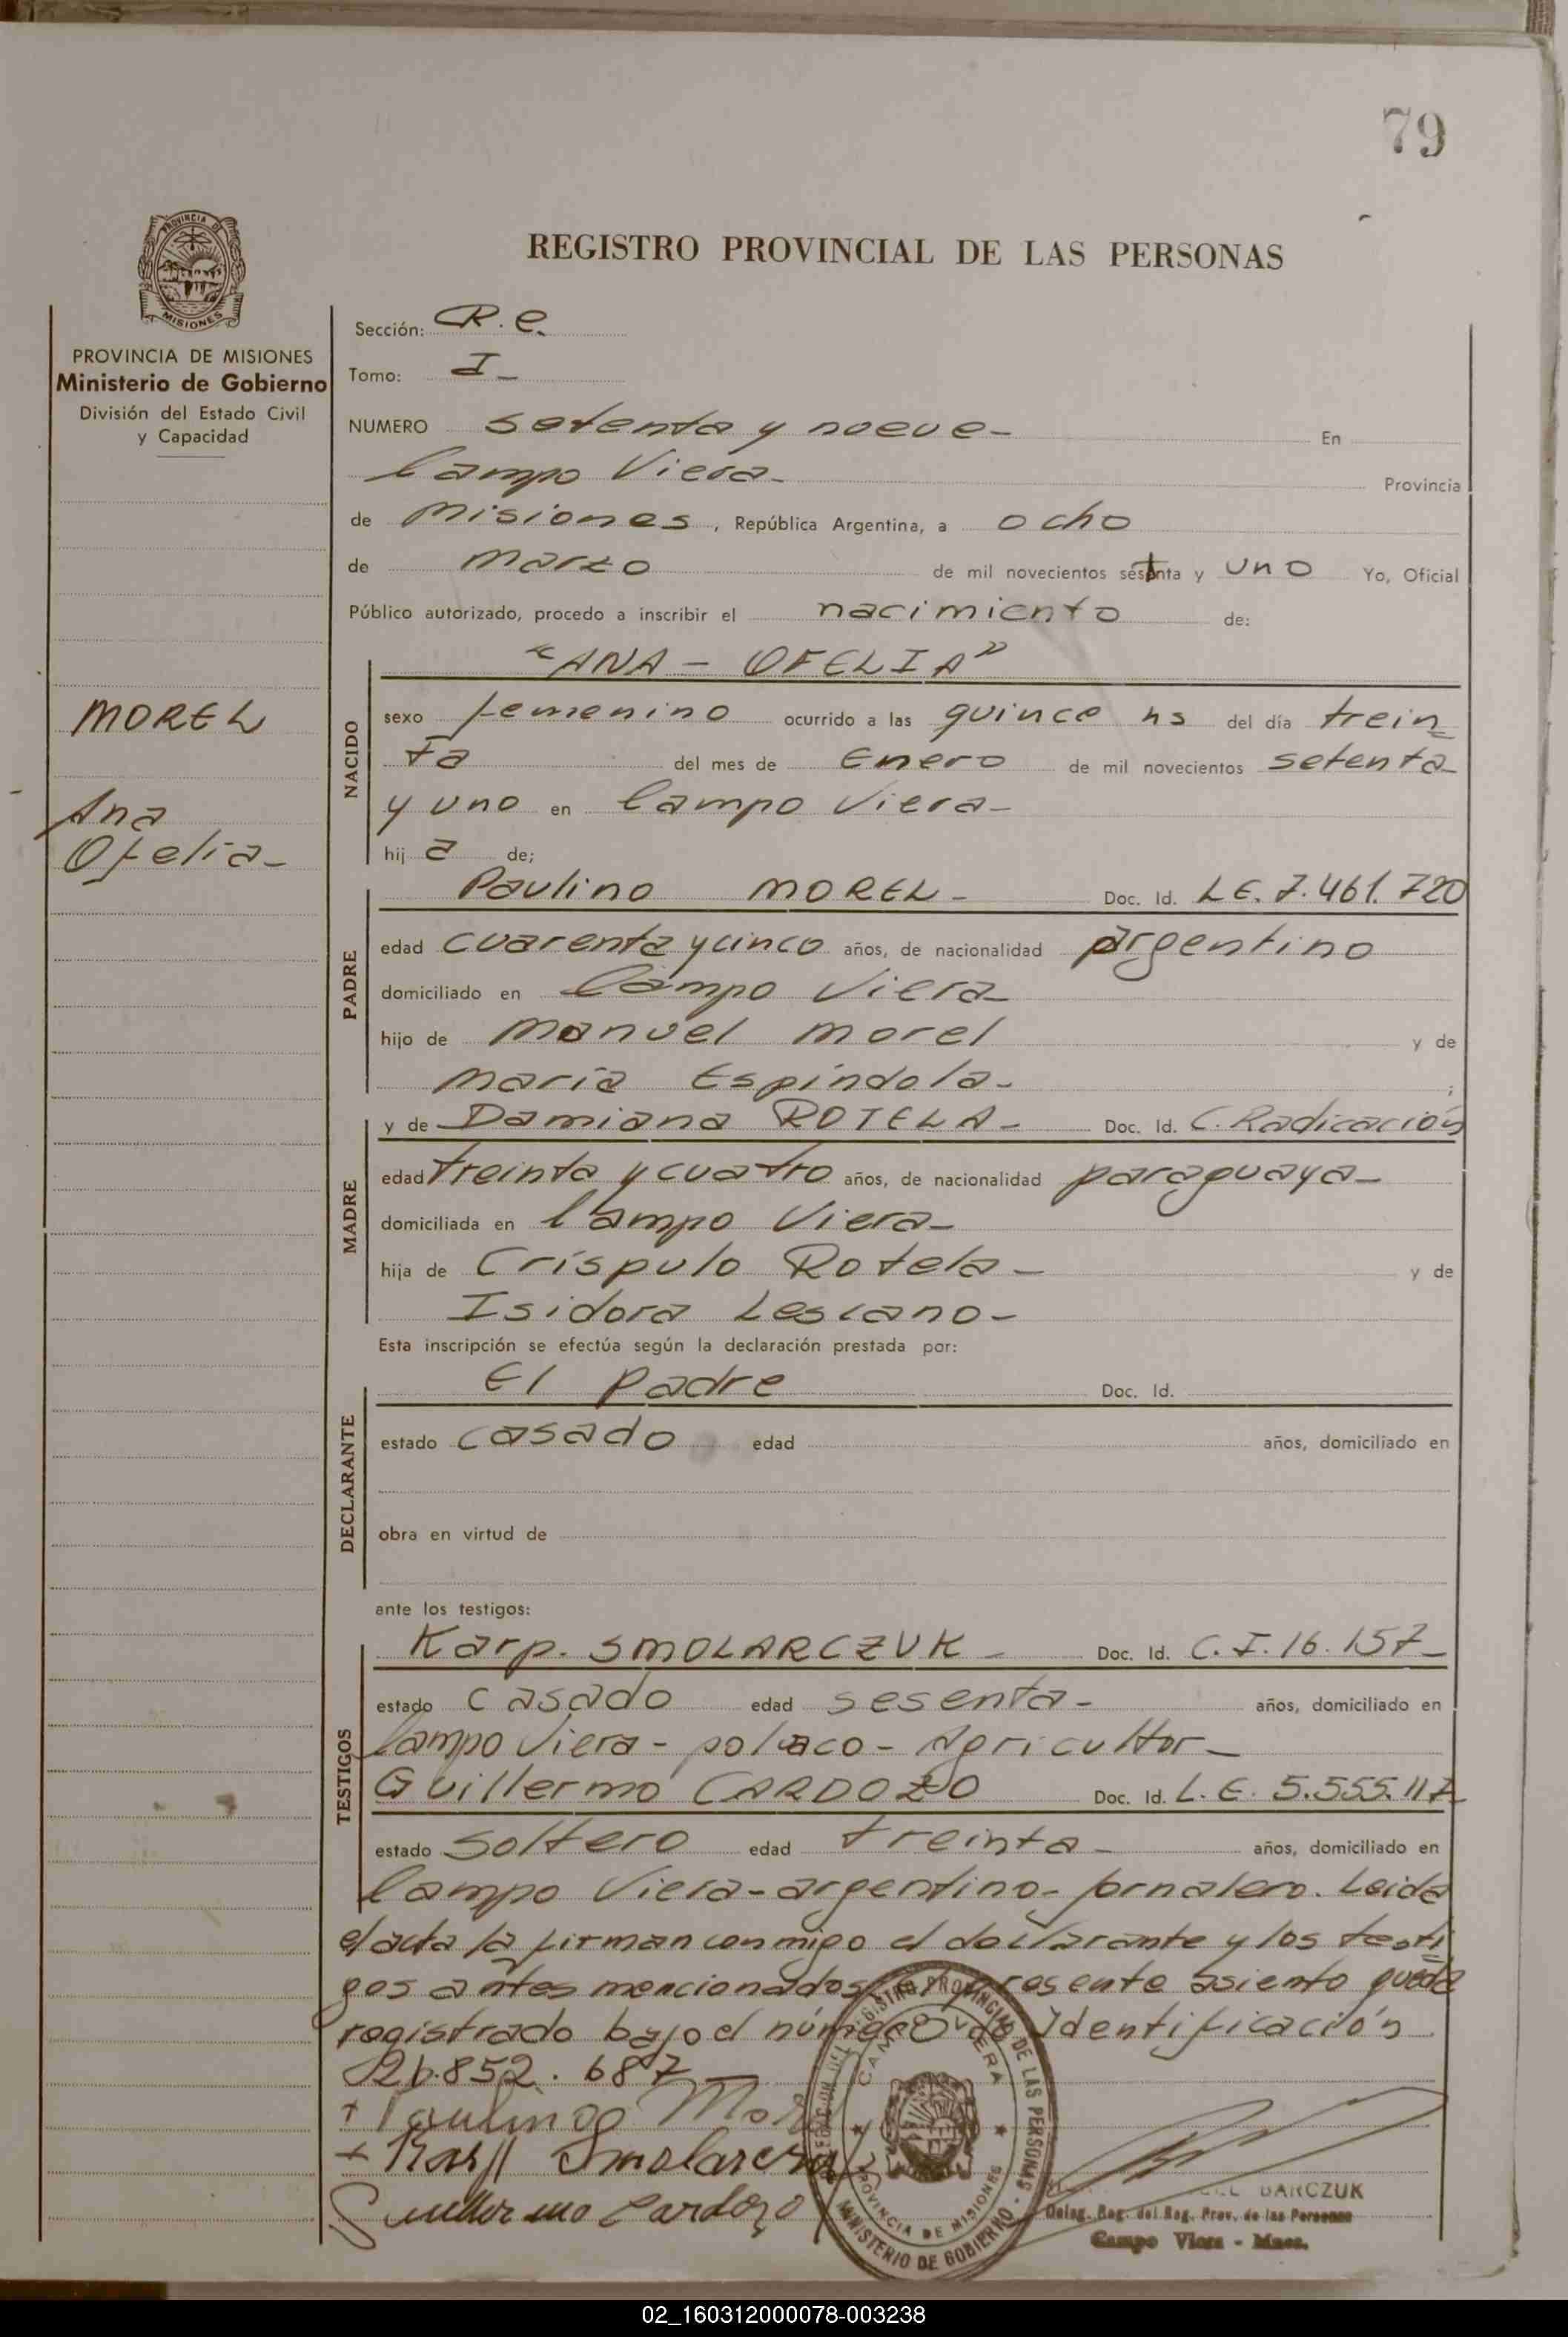 79
REGISTRO PROVINCIAL DE LAS PERSONAS
PROVINCIA DE MISIONES
PROVINCIA DE MISIONES
Ministerio de Gobierno
División del Estado Civil
y Capacidad
MOREL
Ana
Ofelia-
Sección: R. e.
Tomo: I-
NUMERO setenta y nueve- En
Campo Viera- Provincia
de Misiones, República Argentina, a ocho
de marzo de mil novecientos sesenta y uno Yo, Oficial
Público autorizado, procedo a inscribir el nacimiento de:
NACIDO
"ANA - OFELIA"
sexo femenino ocurrido a las quince hs del día trein=
ta del mes de Enero de mil novecientos setenta
y uno en Campo Viera-
hija de;
PADRE
Paulino MOREL- Doc. Id. LE. 7.461.720
edad cuarenta y cinco años, de nacionalidad argentino
domiciliado en Campo Viera-
hijo de Manuel Morel y de
María Espíndola- ;
MADRE
y de Damiana ROTELA- Doc. Id. C. Radicación
edad treinta y cuatro años, de nacionalidad paraguaya-
domiciliada en Campo Viera-
hija de Críspulo Rotela- y de
Isidora Lescano-
Esta inscripción se efectúa según la declaración prestada por:
DECLARANTE
El padre Doc. Id.
estado casado edad años, domiciliado en
obra en virtud de
ante los testigos:
TESTIGOS
Karp. SMOLARCZUK- Doc. Id. C.I. 16.157-
estado casado edad sesenta- años, domiciliado en
Campo Viera- polaco- Agricultor-
Guillermo CARDOZO Doc. Id. L.E. 5.555.117
estado soltero edad treinta- años, domiciliado en
Campo Viera- argentino- jornalero. Leida
el acta la firman conmigo el declarante y los testi=
gos antes mencionados, el presente asiento queda
registrado bajo el número de Identificación
21.852.687-
+ Paulino Morel
+ Karp Smolarczuk
Guillermo Cardozo
REGISTRO PROVINCIAL DE LAS PERSONAS
CAMPO VIERA
PROVINCIA DE MISIONES
MINISTERIO DE GOBIERNO
BARCZUK
Deleg. Reg. del Reg. Prov. de las Personas
Campo Viera - Mnes.
02_160312000078-003238